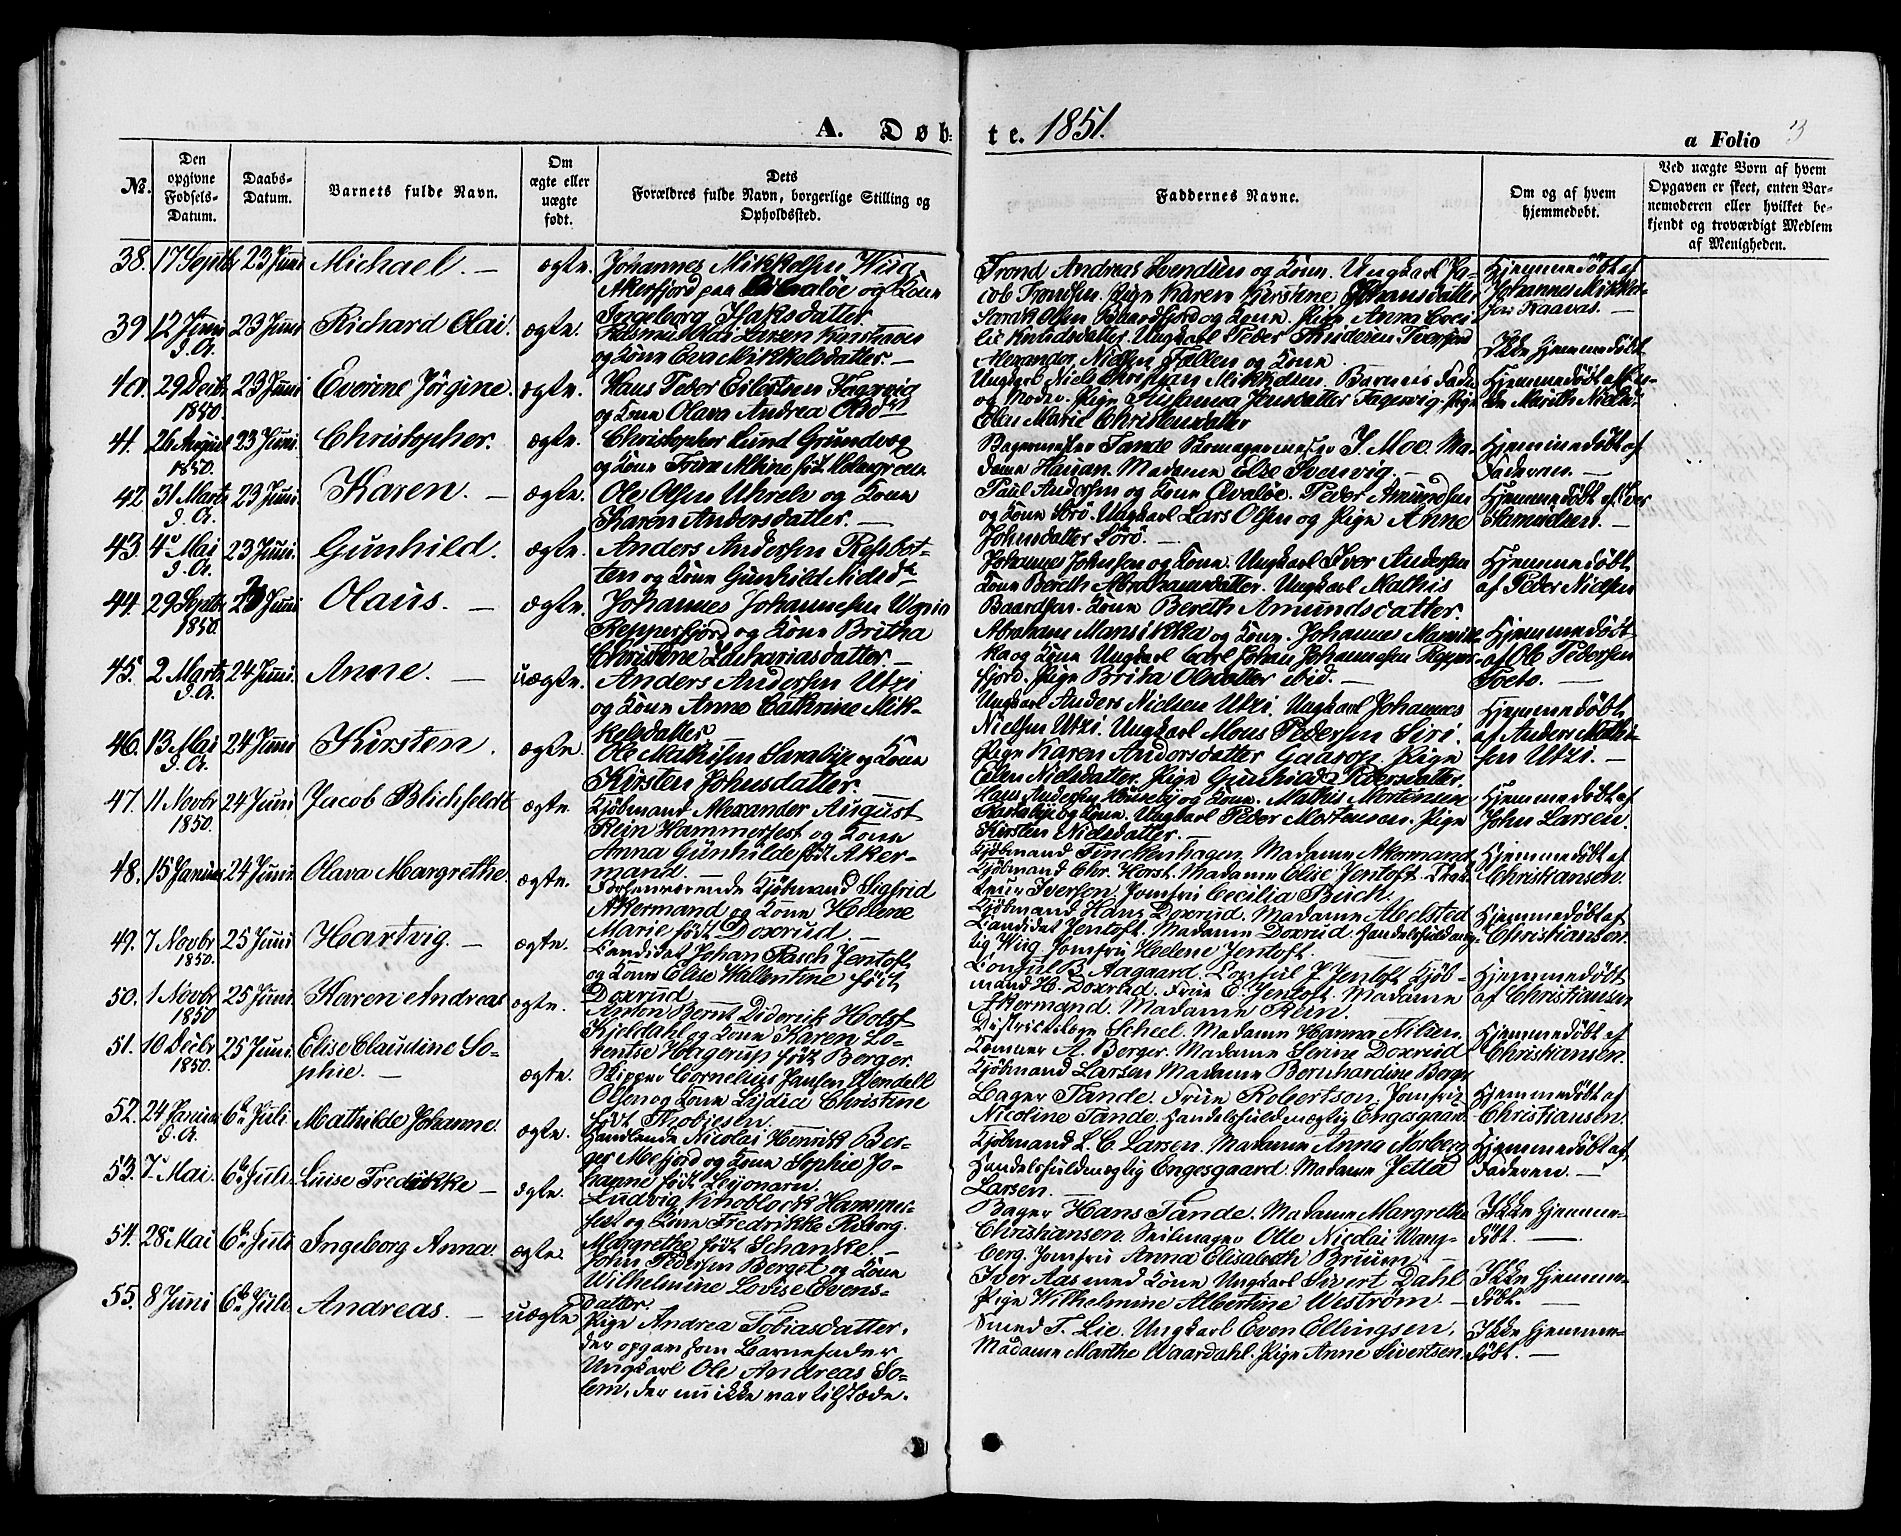 A. Døb-
te. 1851.
a Folio 3
No.
Den
opgivne
Fødsels-
Datum.
Daabs-
Datum.
Barnets fulde Navn.
Om
ægte eller
uægte
født.
Dets
Forældres fulde Navn, borgerlige Stilling og
Opholdssted.
Faddernes Navne.
Om og af hvem
hjemmedøbt.
Ved uægte Børn af hvem
Opgaven er skeet, enten Bar-
nemoderen eller hvilket be-
kjendt og troværdigt Medlem
af Menigheden.
38. 17 Septb 23 Juni Michael. — ægte.
Johannes Mikkelsen Wiig
Akerfjord paa og Kone
Ingeborg Isaksdatter.
Trond Andreas Svendsen og Kone. Ungkarl Ja-
cob Trondsen. Pige Karen Kirstine Johansdatter
Hjemmedøbt af
Johannes Mikkel-
39 12 Juni d. A. 23 Juni Richard Olai. ægte.
Rasmus Nicolai Larsen
og Kone Eva Mikkelsdatter. —
og Kone. Pige Anna Ceci-
lie Knudsdatter. Ungkarl Peder Iversen
Alexander Nielsen og Kone
Ikke hjemmedøbt
40. 29 Decb 1850 23 Juni Everine Jörgine. ægte.
Hans Peder Eilertsen
og Kone Olava Andrea
Ungkarl Niels Christian Mikkelsen. Barnets Fader
og Moder. Pige Susanna Jensdatter Pige
Elen Marie Christensdatter
Hjemmedøbt af
41. 26 August 1850. 23 Juni. Christopher. ægte.
Christopher Lund Grundvog
og Kone
Bagermester Tande. Skomagermester J. Moe. Ma-
dame Hauan. Madame Else
Hjemmedøbt af
Faderen. —
42. 31 Marts d. A. 23 Juni Karen. — ægte.
Ole Olsen og Kone
Karen Andersdatter. —
Paul Andersen og Kone Qvaløe. Peder Amundsen
og Kone Sörö. Ungkarl Lars Olsen og Pige Anne
Johnsdatter Sörö. —
Hjemmedøbt af Iver
Samuelsen. —
43. 4. Mai d. A. 23 Juni. Gunhild. ægte.
Anders Andersen Repbot-
ten og Kone Gunhild Nielsdr
Johannes Johnsen og Kone. Ungkarl Iver Andersen
Kone Bereth Abrahamsdatter. Ungkarl Mathis
Baardsen. Kone Bereth Amundsdatter.
Hjemmedøbt
af Peder Nielsen
44. 29 Septb 1850. 23 Juni Olaus. — ægte.
Johannes Johannesen
Repperfjord og Kone Britha
Christine Zachariasdatter. —
Abraham Mansikka og Kone. Johannes Mansik-
ka og Kone Ungkarl Carl Johan Johannesen Repper-
fjord. Pige Brita Olsdatter ibid. —
Hjemmedøbt
af Ole Pedersen
45. 2 Marts d. A. 24 Juni. Anne. — uægte.
Anders Andersen Utzi
og Kone Anne Cathrine Mik-
kelsdatter
Ungkarl Anders Nielsen Utzi. Ungkarl Johannes
Nielsen Utzi. Ungkarl Mons Pedersen Siri.
Pige Karen Andersdatter Pige
Elen Nielsdatter. Pige Gunhild Pedersdatter.
Hjemmedøbt
af Anders Mathi-
sen Utzi. —
46. 13 Mai d. A. 24 Juni Kirsten. ægte.
Ole Mathisen og Kone
Kirsten Johnsdatter. —
Hans Andersen og Kone. Mathis Mortensen
og Kone. Ungkarl Peder Mortensen. Pige
Kirsten Nielsdatter. —
Hjemmedøbt af
John Larsen.
47. 11 Novbr 1850. 24 Juni Jacob Blichfeldt ægte
Kjöbmand Alexander August
Rein Hammerfest og Kone
Anna Gunhilde født Aker-
mand. —
Kjöbmand Finckenhagen. Madame Akermand.
Kjöbmand Chr. Horst. Madame Elise Jentoft.
Iversen. Jomfru Cecilia Buck.
Hjemmedøbt af
Christiansen.
48. 15 Januar 24 Juni Olava Margrethe. ægte.
Forhenværende Kjöbmand Sigfrid
Akermand og Kone Helene
Marie født Doxrud. —
Kjöbmand Hans Doxrud. Madame Abelsted
Candidat Jentoft. Madame Doxrud. Handelsfuldmæg-
tig Wiig. Jomfru Helene Jentoft. —
Hjemmedøbt af
Christiansen.
49. 7 Novbr 1850. 25 Juni Hartvig. — ægte.
Candidat Johan Rasch Jentoft
og Kone Elise Wallentine født
Doxrud
Consul B. Aagaard. Consul P. Jentoft. Kjöb-
mand H. Doxrud. Frue E. Jentoft. Madame
Akermand. Madame Rein.
Hjemmedøbt
af Christiansen
50. 1 Novbr 1850 25 Juni. Karen Andreas ægte.
Anton Bernt Diderik Holst
Kjeldahl og Kone Karen Lo-
rentse Hagerup født Berger.
Districtslæge Scheel. Madame Hanna Nilsen.
A. Berger. Madame Serine Doxrud
Kjöbmand Larsen Madame Bernhardine Berger
Hjemmedøbt af
Christiansen.
51. 10 Decbr 1850. 25 Juni. Elise Claudine So-
phie. — ægte.
Skipper Cornelius Jansen Wendell
Olsen og Kone Lydia Christine
født Thobiesen.
Bager Tande. Frue Robertson. Jomfru
Nicoline Tande. Handelsfuldmægtig Engesgaard.
Hjemmedøbt af
Christiansen.
52. 24 Januar d. A. 6te Juli Mathilde Johanne. ægte.
Handlende Nicolai Henrik Ber-
ger Mefjord og Kone Sophie Jo-
hanne født
Kjöbmand L. C. Larsen. Madame Anna Norberg
Handelsfuldmægtig Engesgaard. Madame Jetta
Larsen. —
Hjemmedøbt af
Faderen. —
53. 7. Mai. 6te Juli. Luise Fredrikke — ægte.
Ludvig Knoblock Hammer-
fest og Kone Fredrikke
Margrethe født Schanke. —
Bager Hans Tande. Madame Margrethe
Christiansen. Seilmager Ole Nicolai Wang-
berg. Jomfru Anna Elisabeth Bruun. —
Ikke hjemme-
døbt. —
54. 28. Mai 6te Juli Ingeborg Anna. ægte.
John Pedersen Berget og Kone
Wilhelmine Lovise Evens-
datter.
Iver Aas med Kone Ungkarl Sivert Dahl
Pige Wilhelmine Albertine Weström. —
Ikke hjemme-
døbt. —
55. 8 Juni 6te Juli Andreas. — uægte
Pige Andrea Tobiasdatter,
der opgav som Barnefader
Ungkarl Ole Andreas So-
lem, der nu ikke var tilstede.
Smed T. Lie. Ungkarl Even Ellingsen.
Madame Marthe Waardahl. Pige Anne Sivertsen.
Ikke hjemme-
døbt. —